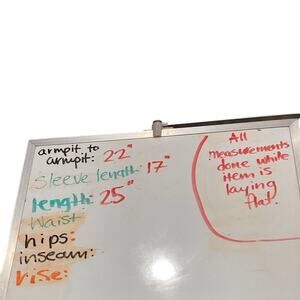 armpit to
armpit: 22"
Sleeve length: 17"
length: 25"
Waist
hips:
inseam:
rise:
All
measurements
done while
item is
laying
flat.